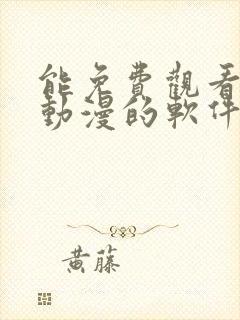 能免費觀看
動漫的軟件
黃藤